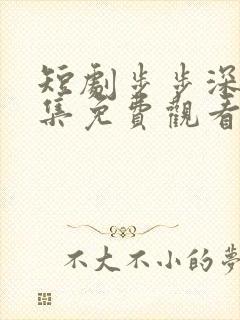 短劇步步深
集免費觀看
不大不小的夢